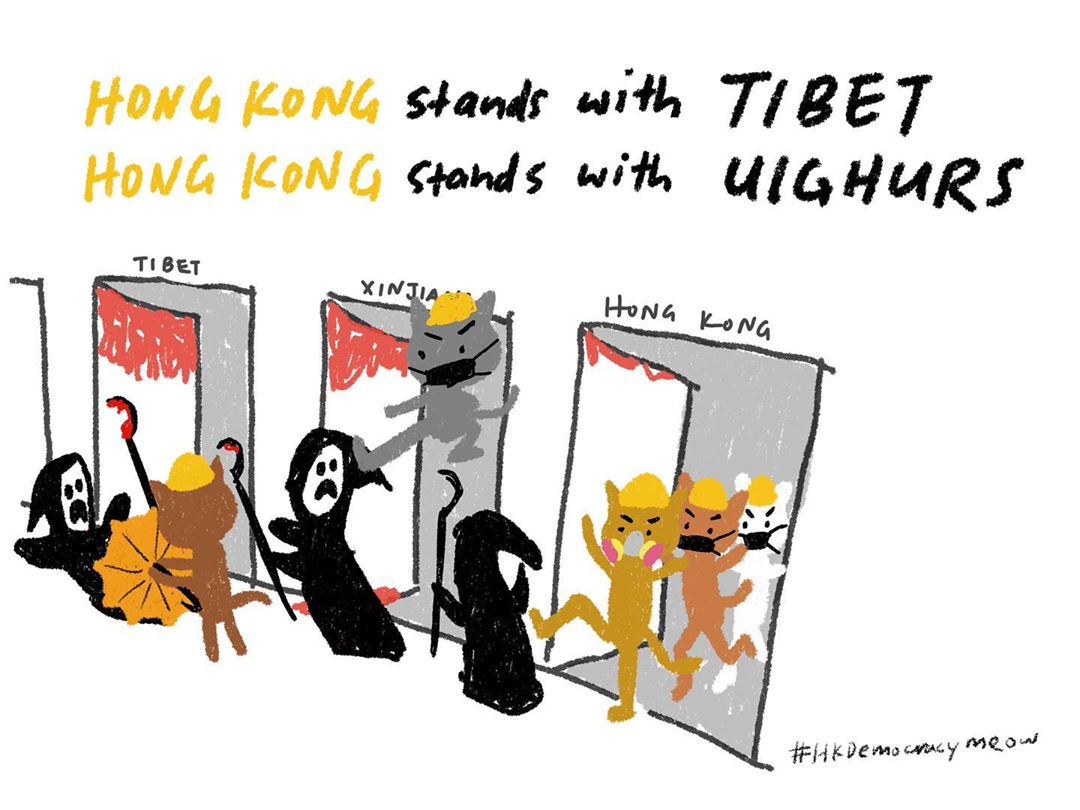 HONG KONG stands with TIBET
HONG KONG stands with UIGHURS
TIBET
HONG KONG
#HKDemocracymeow